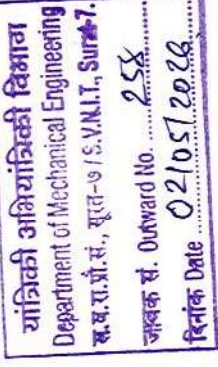 यांत्रिकी अभियांत्रिकी विभाग
Department of Mechanical Engineering
स.व.रा.प्रौ.सं., सूरत-७ / S.V.N.I.T., Surat-7.
जावक सं. Outward No. 258
दिनांक Date 02/05/2026